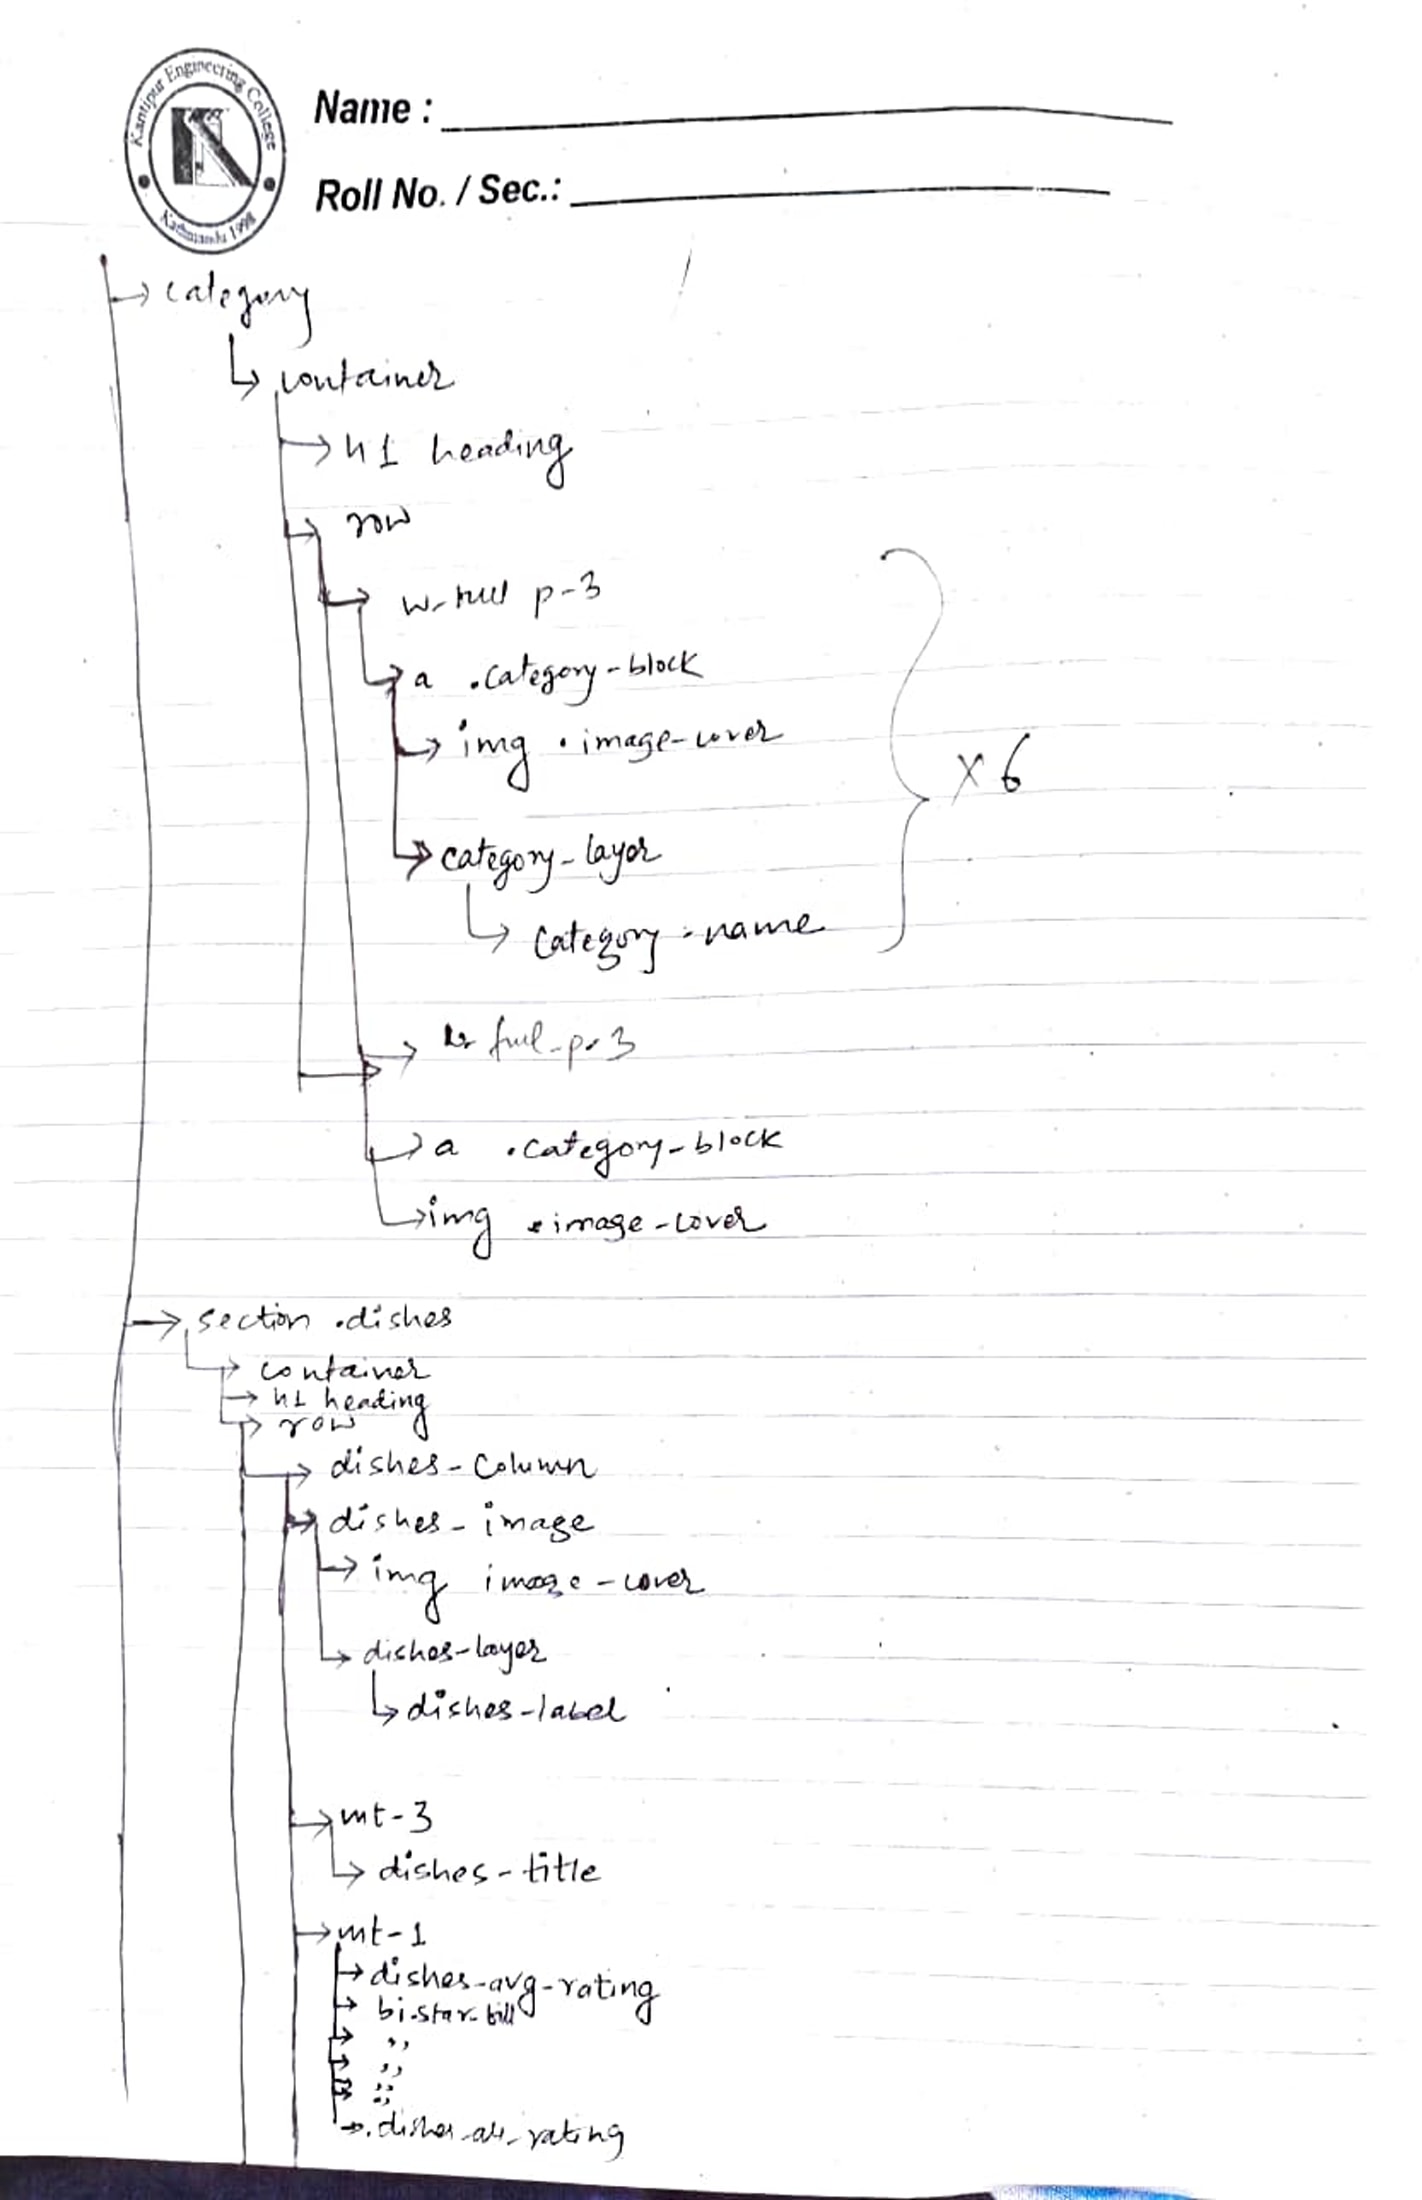 Kantipur Engineering College
Kathmandu 1998
Name :
Roll No. / Sec.:
category
container
h1 heading
row
w-full p-3
a .category-block
img .image-cover
category-layer
category-name
x 6
full-p-3
a .category-block
img .image-cover
section .dishes
container
h1 heading
row
dishes-column
dishes-image
img image-cover
dishes-layer
dishes-label
mt-3
dishes-title
mt-1
dishes-avg-rating
bi-star-fill
,,
,,
,,
,,
rating